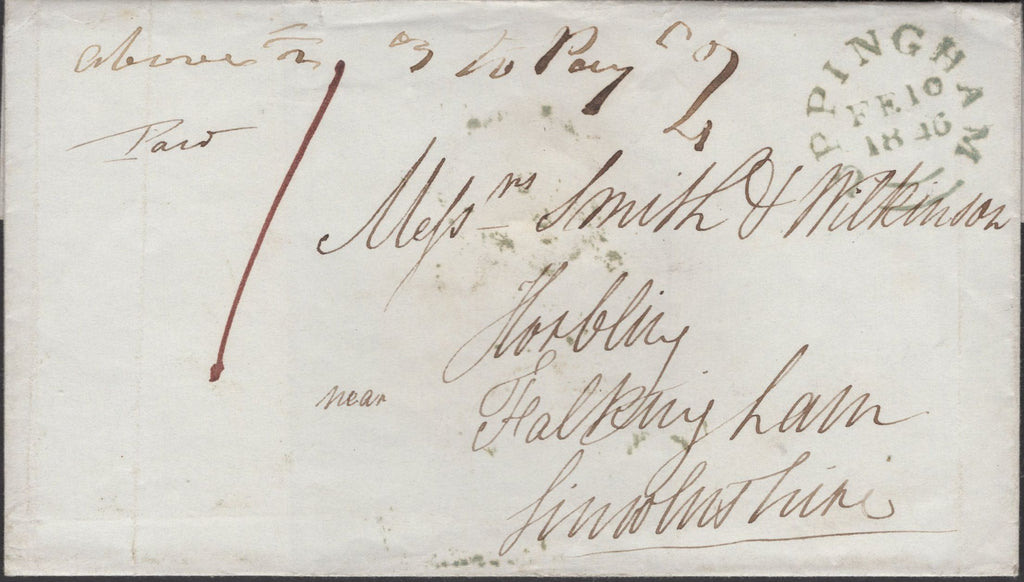 above oz oz to Pay 2
UPPINGHAM
FE 10
1846
Paid
1
Messrs Smith & Wilkinson
Horbling
near Falkingham
Lincolnshire